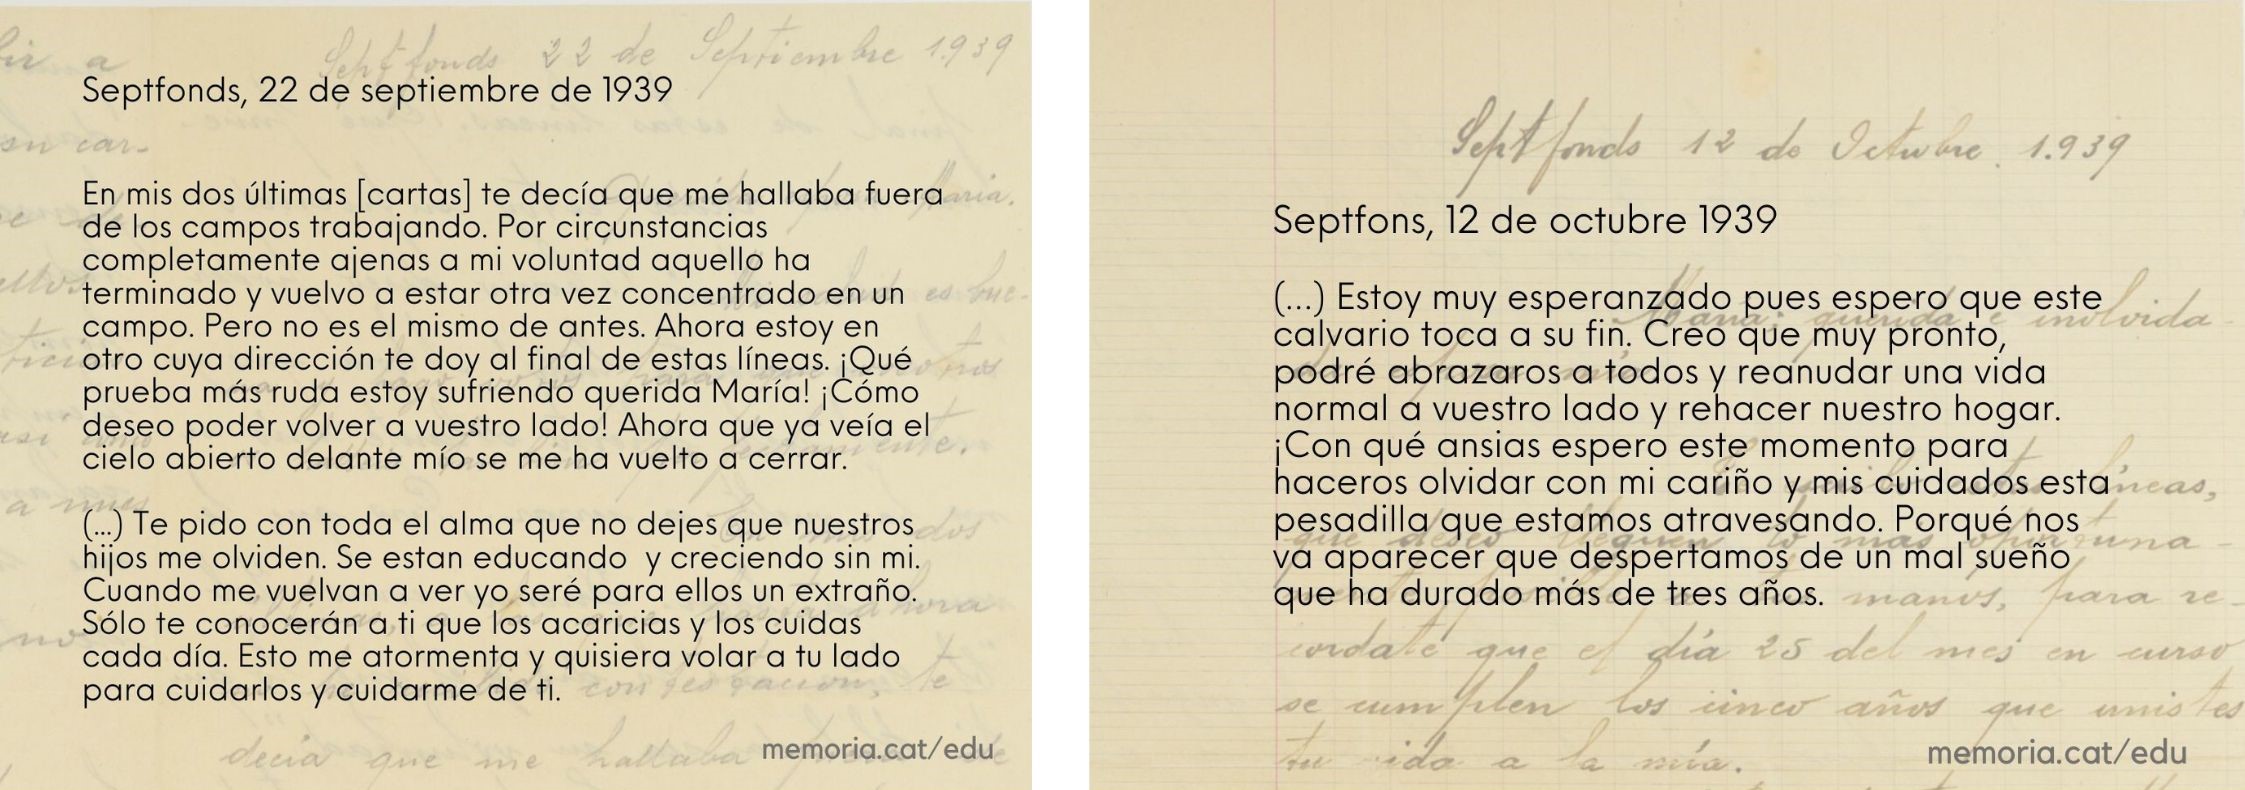 Septfonds 22 de Septiembre 1.939
Septfonds, 22 de septiembre de 1939
En mis dos últimas [cartas] te decía que me hallaba fuera
de los campos trabajando. Por circunstancias
completamente ajenas a mi voluntad aquello ha
terminado y vuelvo a estar otra vez concentrado en un
campo. Pero no es el mismo de antes. Ahora estoy en
otro cuya dirección te doy al final de estas líneas. ¡Qué
prueba más ruda estoy sufriendo querida María! ¡Cómo
deseo poder volver a vuestro lado! Ahora que ya veía el
cielo abierto delante mío se me ha vuelto a cerrar.
(...) Te pido con toda el alma que no dejes que nuestros
hijos me olviden. Se estan educando  y creciendo sin mi.
Cuando me vuelvan a ver yo seré para ellos un extraño.
Sólo te conocerán a ti que los acaricias y los cuidas
cada día. Esto me atormenta y quisiera volar a tu lado
para cuidarlos y cuidarme de ti.
decía que me hallaba
memoria.cat/edu
Septfonds 12 de Octubre. 1.939
Septfons, 12 de octubre 1939
(...) Estoy muy esperanzado pues espero que este
calvario toca a su fin. Creo que muy pronto,
podré abrazaros a todos y reanudar una vida
normal a vuestro lado y rehacer nuestro hogar.
¡Con qué ansias espero este momento para
haceros olvidar con mi cariño y mis cuidados esta
pesadilla que estamos atravesando. Porqué nos
va aparecer que despertamos de un mal sueño
que ha durado más de tres años.
manos, para re-
cordate que el día 25 del mes en curso
se cumplen los cinco años que unistes
tu vida a la mía.
memoria.cat/edu